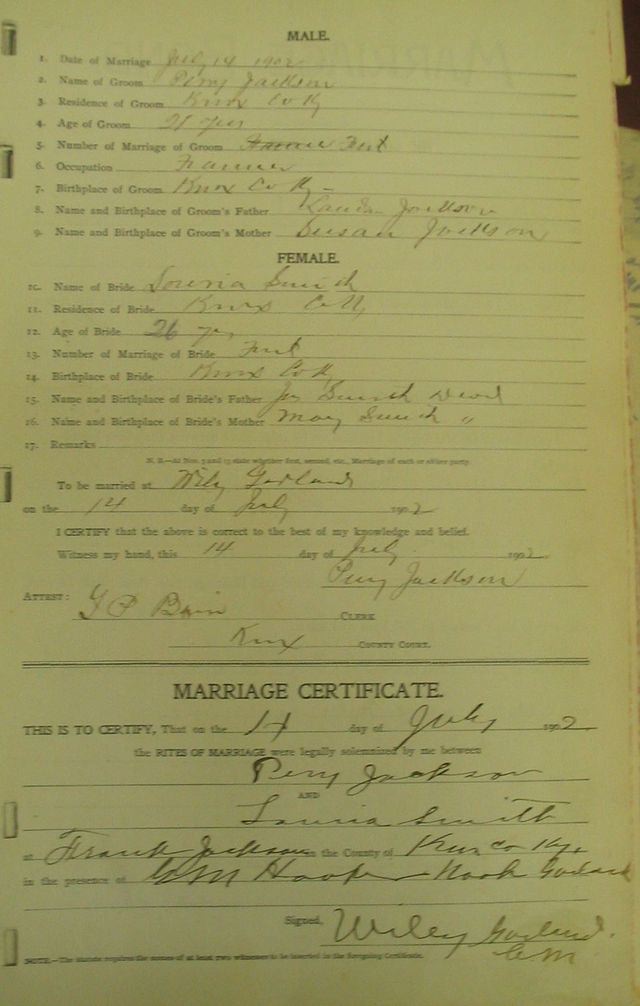 MALE.
1. Date of Marriage July 14 1902
2. Name of Groom Perry Jackson
3. Residence of Groom Knox Co Ky
4. Age of Groom 21 yrs
5. Number of Marriage of Groom First
6. Occupation Farmer
7. Birthplace of Groom Knox Co Ky
8. Name and Birthplace of Groom's Father Jackson
9. Name and Birthplace of Groom's Mother Susan Jackson
FEMALE.
10. Name of Bride Louria Smith
11. Residence of Bride Knox Co Ky
12. Age of Bride 26 yrs
13. Number of Marriage of Bride First
14. Birthplace of Bride Knox Co Ky
15. Name and Birthplace of Bride's Father Smith Dead
16. Name and Birthplace of Bride's Mother Mary Smith "
17. Remarks
N. B.—At Nos. 5 and 13 state whether first, second, etc., Marriage of each or either party.
To be married at Wiley Garland
on the 14 day of July 1902
I CERTIFY that the above is correct to the best of my knowledge and belief.
Witness my hand, this 14 day of July 1902
Perry Jackson
ATTEST: CLERK
Knox COUNTY COURT.
MARRIAGE CERTIFICATE.
THIS IS TO CERTIFY, That on the 14 day of July 1902
the RITES OF MARRIAGE were legally solemnized by me between
Perry Jackson
AND
Louria Smith
at Frank Jackson in the County of Knox Co Ky.
in the presence of G M Noah
Signed, Wiley Garland.
NOTE.—The statute requires the names of at least two witnesses to be inserted in the foregoing Certificate.